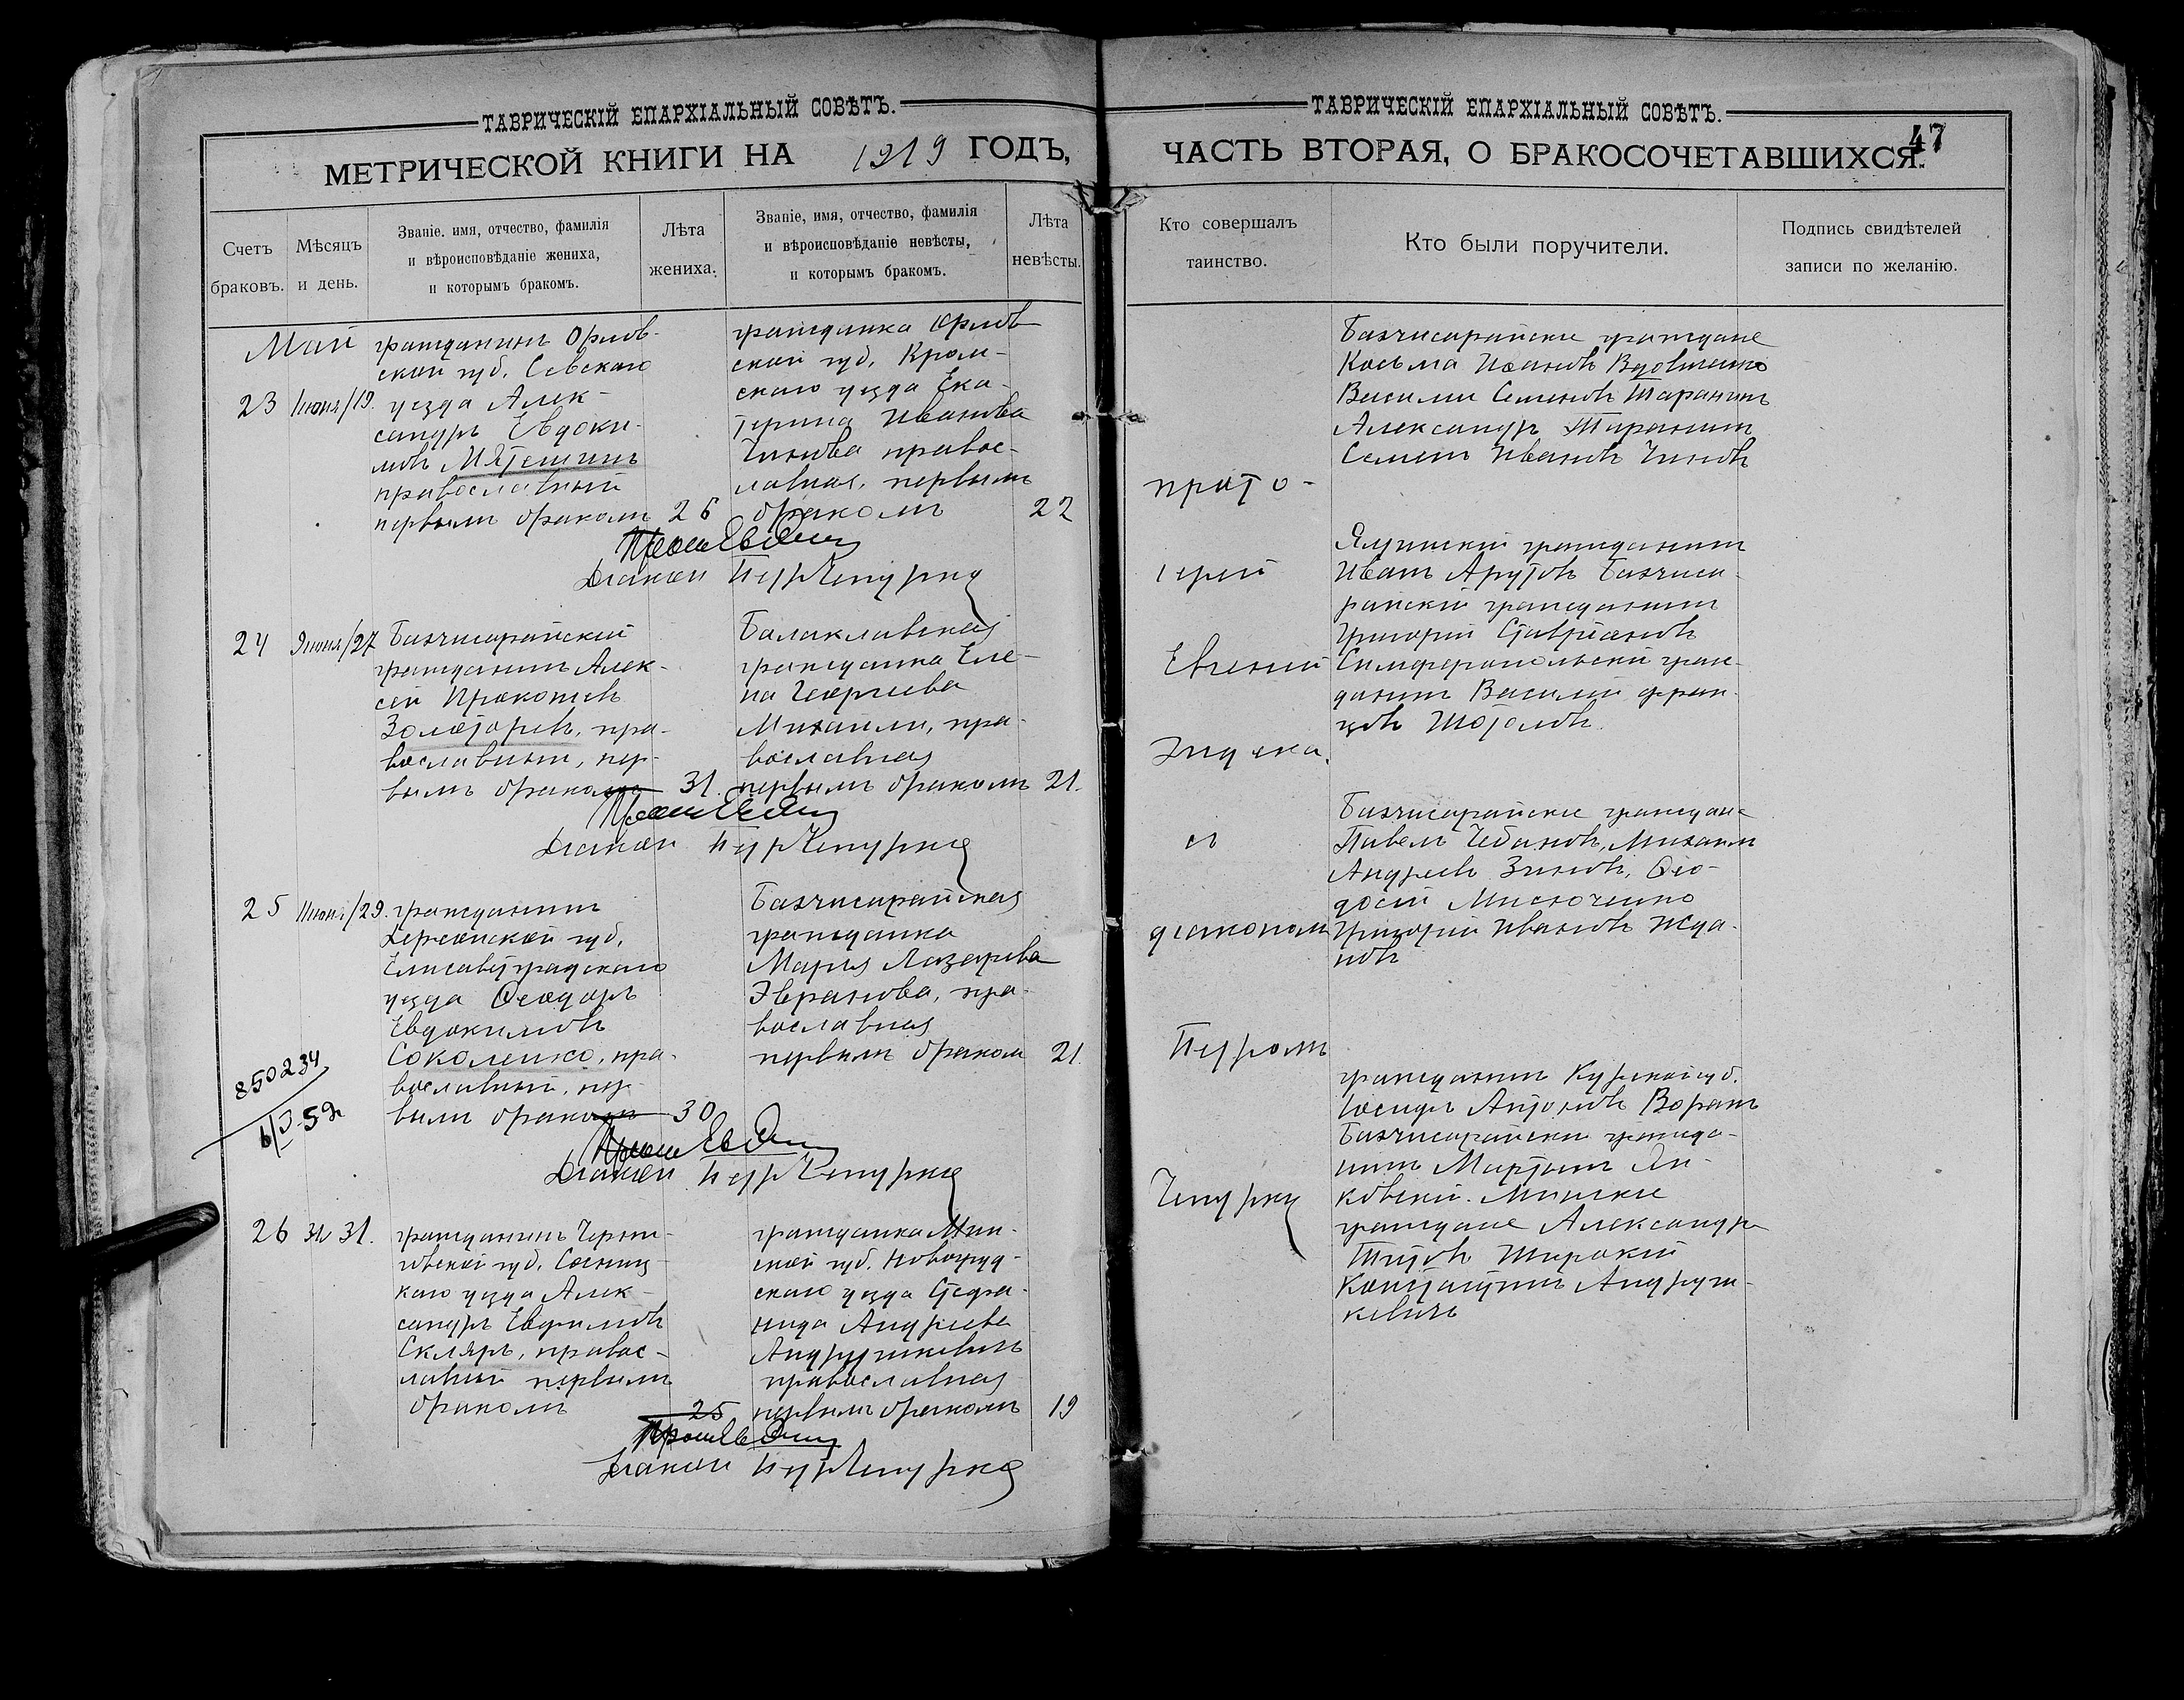 ТАВРИЧЕСКІЙ ЕПАРХІАЛЬНЫЙ СОВѢТЪ.
МЕТРИЧЕСКОЙ КНИГИ НА 1919 ГОДЪ,
Счетъ браковъ.
Мѣсяцъ и день.
Званіе. имя, отчество, фамилія
и вѣроисповѣданіе жениха,
и которымъ бракомъ.
Лѣта
жениха.
Званіе, имя, отчество, фамилія
и вѣроисповѣданіе невѣсты,
и которымъ бракомъ.
Лѣта
невѣсты.
Май
23 Іюня/19.
гражданинъ Орлов-
ской губ. Севскаго
уезда Алек-
сандръ Евдоки-
мовъ Мятешинъ
православный
первымъ бракомъ 26
гражданка Орлов-
ской губ. Кром-
скаго уезда Ека-
терина Иванова
Чинова правос-
лавная, первымъ
бракомъ 22
Діакон Петр Чепурка
24 Іюня/27
Бахчисарайский
гражданинъ Алек-
сей Прокопиев
Золотарев, пра-
вославный, пер-
вымъ браком 31.
Балаклавская
гражданка Еле-
на Георгиева
Михаили, пра-
вославная
первымъ бракомъ 21.
Діакон Петр Чепурка
25 Іюня/29.
гражданинъ
Херсонской губ.
Елисаветградскаго
уезда Феодоръ
Евдокимовъ
Соколенко, пра-
вославный, пер-
вымъ браком 30
Бахчисарайская
гражданка
Мария Лазарева
Эвранова, пра-
вославная
первымъ браком 21.
850234
Діакон Петр Чепурка
26 31.
гражданинъ Черни-
говской губ. Сосниц-
каго уезда Алек-
сандръ Евфимовъ
Скляръ, правос-
лавный первымъ
бракомъ 25
гражданка Мин-
ской губ. Новогруд-
скаго уезда Стефа-
нида Андреева
Андрушкевичъ
православная
первымъ бракомъ 19
Діакон Петр Чепурка
ТАВРИЧЕСКІЙ ЕПАРХІАЛЬНЫЙ СОВѢТЪ.
47
ЧАСТЬ ВТОРАЯ, О БРАКОСОЧЕТАВШИХСЯ.
Кто совершалъ
таинство.
Кто были поручители.
Подпись свидѣтелей
записи по желанію.
прото-
іерей
Евгений
Эндека
съ
діакономъ
Петромъ
Чепурка
Бахчисарайские граждане
Косьма Иоановъ Вдовиченко
Василий Семеновъ Таранинъ
Александр Таранинъ
Семенъ Ивановъ Чиновъ
Ялтинский гражданинъ
Иванъ Арутовъ Бахчиса-
райский гражданинъ
Григорий Ставриановъ
Симферопольский граж-
данинъ Василий Фран-
цовъ Шотоловъ.
Бахчисарайские граждане
Павелъ Чебановъ, Михаил
Андреевъ Зиновъ, Фео-
досий Мисюченко
Григорий Ивановъ Жда-
новъ
гражданинъ Курской губ.
Иосифъ Антоновъ Воранъ
Бахчисарайский гражда-
нинъ Мартынъ Ян-
ковский. Минские
граждане Александр
Титовъ Широкий
Константинъ Андруш-
кевичъ